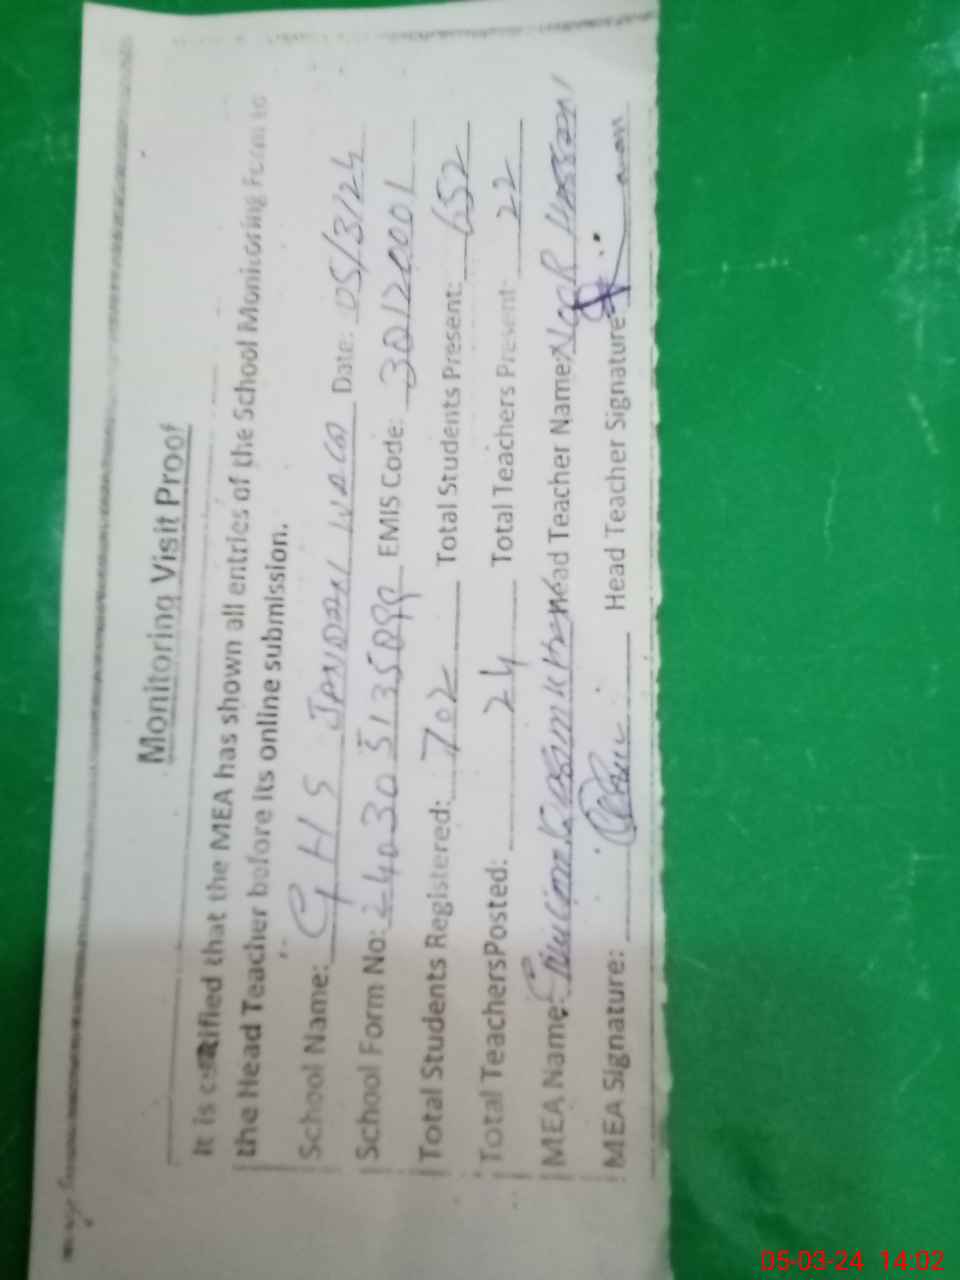 Monitoring Visit Proof
It is certified that the MEA has shown all entries of the School Monitoring Form to
the Head Teacher before its online submission.
School Name: GHS Date: 05/3/24
School Form No: EMIS Code: 30120001
Total Students Registered: 702 Total Students Present: 652
Total TeachersPosted: 24 Total Teachers Present: 22
MEA Name: Head Teacher Name: Noor Hassan
MEA Signature: Head Teacher Signature:
05-03-24 14:02